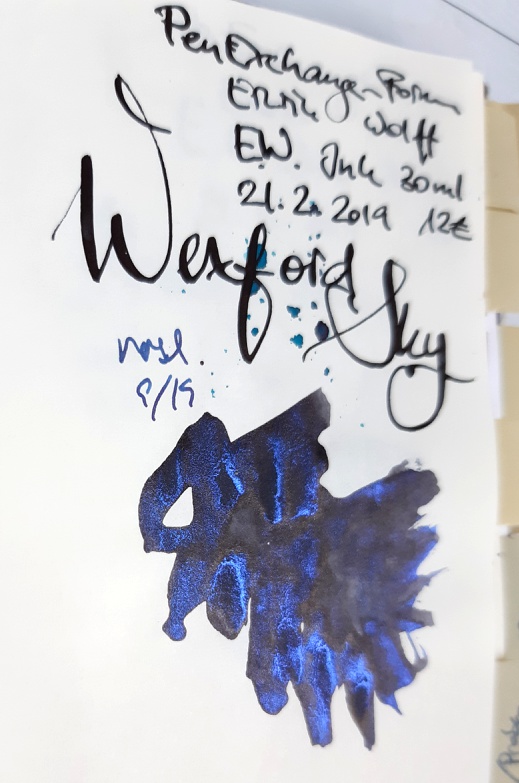 PenExchange-Forum
Erik Wolff
E.W. Ink 30ml
21.2.2019 12€
Wexford Sky
9/19